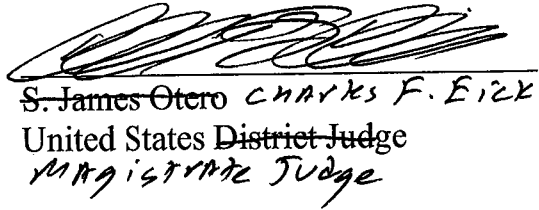 S. James Otero Charles F. Eick
United States District Judge
Magistrate Judge